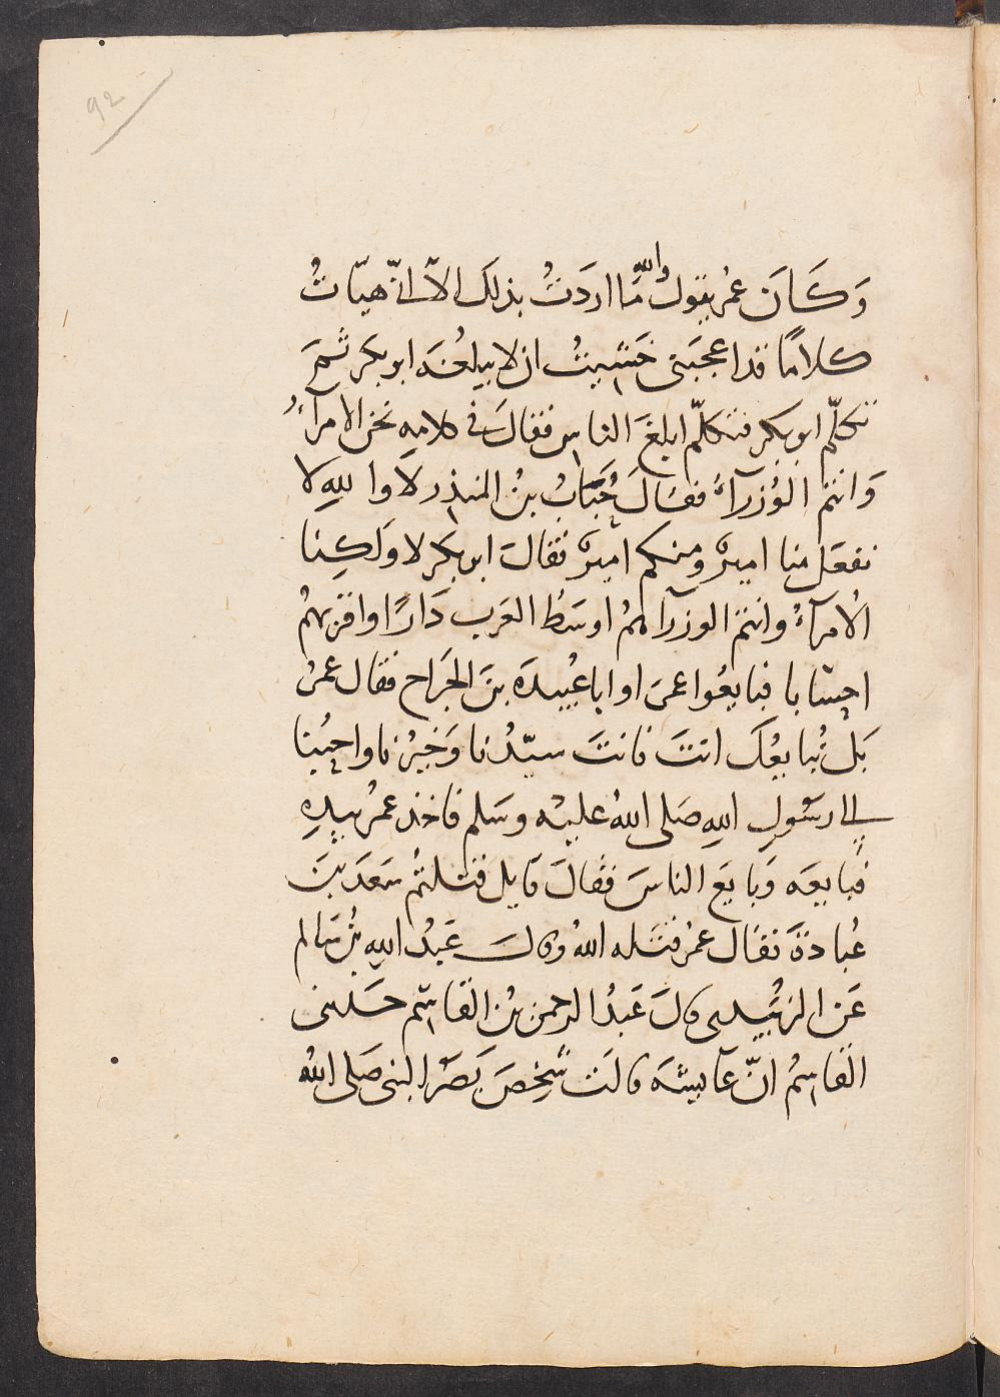 92
وَكَانَ عُمَرُ يقول والله مَا اردَتُ بذلكَ الاّ انّى هيّاتُ
كلامًا قد اعجبَنى خَشيتُ ان لا يبلغُهَ ابو بكر ثمَّ
تكلّم ابو بكر فتكلّم ابلغَ الناس فقالَ فى كلامِهِ نحنُ الامرآءُ
وَانتمُ الوُزرآءُ فقالَ حُبَابُ بنُ المنذر لا والله لا
نفعَل منا اميرٌ ومنكم اميرٌ فقالَ ابو بَكر لا وَلكِنا
الاُمرآءُ وانتمُ الوزرآ همُ اوسَطُ العَرب دَارًا واقربهُم
احسَابا فبايعُوا عمرَ او ابا عُبيدَةَ بنَ الجَراح فقال عمرُ
بَل نُبايعُكَ انتَ فانتَ سيّدُنا وَخَيرُنا واحبُنا
الى رسَولِ اللهِ صَلى اللهُ عليْه وسَلم فاخذ عمرُ بيدِهِ
فبايعَه وَبايعَ الناسَ فقالَ قايل قتلتمُ سَعَد بنَ
عُبادةَ فقالَ عمرُ قتَله اللهُ وقالَ عَبدُ اللهِ بنُ سَالم
عَن الزبُيدى قالَ عَبدُ الرحمن بن القَاسِم حَدثنى
القَاسِمُ انّ عآيشَه قالَت شَخِصَ بَصَرُ النبى صَلى اللهُ